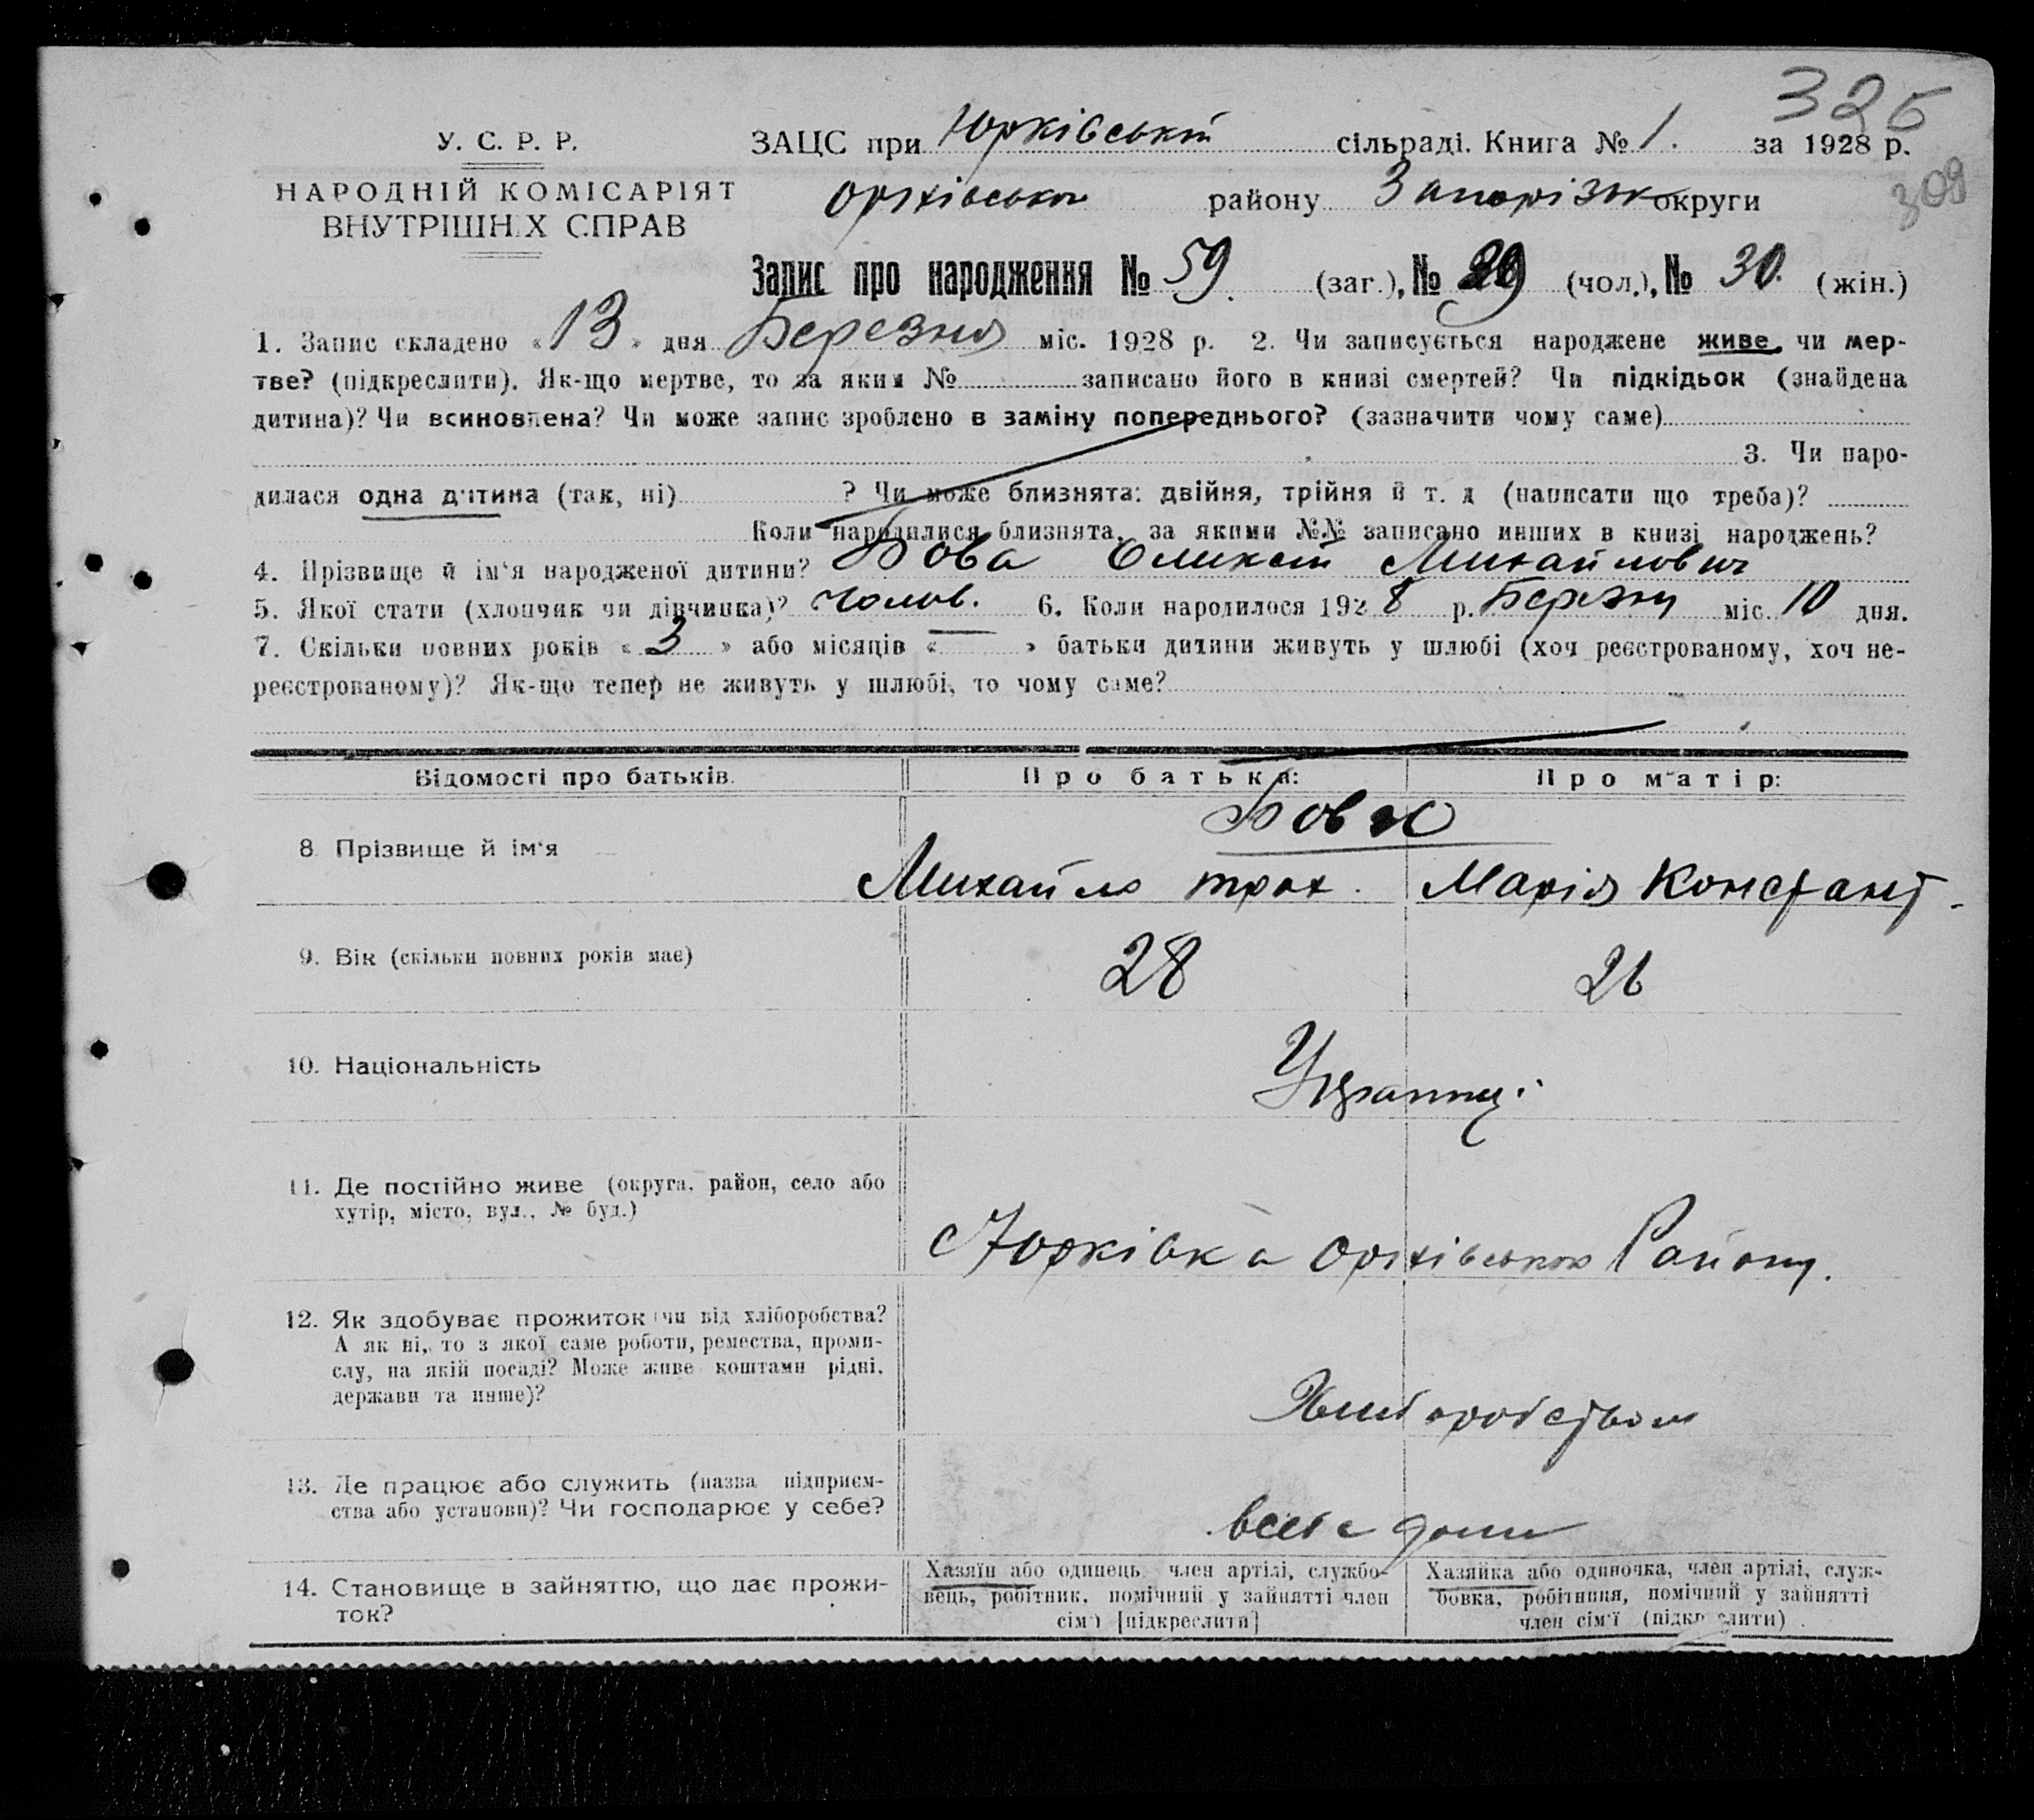 325
309
У. С. Р. Р.
НАРОДНІЙ КОМІСАРІЯТ
ВНУТРІШН.Х СПРАВ
ЗАЦС при Юрківській сільраді. Книга № 1. за 1928 р.
Оріхівськ району Запорізьк округи
Запис про народження № 59. (заг.), № 29 (чол.), № 30. (жін.)
1. Запис складено « 13 » дня Березня міс. 1928 р. 2. Чи записується народжене живе, чи мер-
тве? (підкреслити). Як-що мертве, то за яким № записано його в книзі смертей? Чи підкідьок (знайдена
дитина)? Чи всиновлена? Чи може запис зроблено в заміну попереднього? (зазначити чому саме)
3. Чи наро-
дилася одна дитина (так, ні) ? Чи може близнята: двійня, трійня й т. д (написати що треба)?
Коли народилися близнята, за якими №№ записано инших в книзі народжень?
4. Прізвище й ім‘я народженої дитини? Бова Оликсій Михайлович
5. Якої стати (хлопчик чи дівчинка)? Чолов. 6. Коли народилося 1928 р. Березня міс. 10 дня.
7. Скільки повних років « 3 » або місяців « — » батьки дитини живуть у шлюбі (хоч реєстрованому, хоч не-
реєстрованому)? Як-що тепер не живуть у шлюбі, то чому саме?
Відомості про батьків. Про батька: Про матір:
Бова
8. Прізвище й ім‘я Михайло трох. Марія Констант.
9. Вік (скільки повних років має) 28 26
10. Національність Українці
11. Де постійно живе (округа, район, село або
хутір, місто, вул., № буд.)
с Юрківка Оріхівськ Району.
12. Як здобуває прожиток (чи від хліборобства?
А як ні, то з якої саме роботи, ремества, проми-
слу, на якій посаді? Може живе коштами рідні,
держави та инше)?
Хлиборобством
13. Де працює або служить (назва підприєм-
ства або установи)? Чи господарює у себе?
всебе дома
14. Становище в зайняттю, що дає прожи-
ток?
Хазяїн або одинець, член артілі, службо-
вець, робітник, помічний у зайнятті член
сім‘ї [підкреслити]
Хазяйка або одиночка, член артілі, служ-
бовка, робітниця, помічний у зайнятті
член сім‘ї (підкреслити)